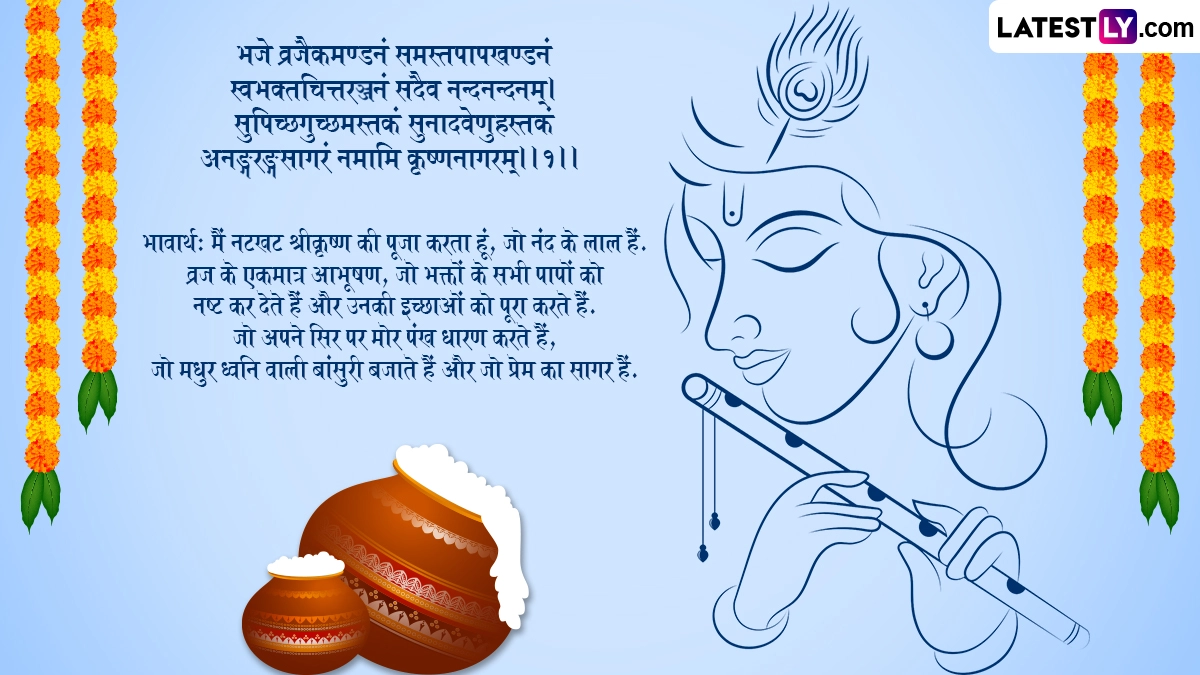 LATESTLY.com
भजे व्रजैकमण्डनं समस्तपापखण्डनं
स्वभक्तचित्तरञ्जनं सदैव नन्दनन्दनम्।
सुपिच्छगुच्छमस्तकं सुनादवेणुहस्तकं
अनङ्गरङ्गसागरं नमामि कृष्णनागरम्।।१।।
भावार्थः मैं नटखट श्रीकृष्ण की पूजा करता हूं, जो नंद के लाल हैं.
व्रज के एकमात्र आभूषण, जो भक्तों के सभी पापों को
नष्ट कर देते हैं और उनकी इच्छाओं को पूरा करते हैं.
जो अपने सिर पर मोर पंख धारण करते हैं,
जो मधुर ध्वनि वाली बांसुरी बजाते हैं और जो प्रेम का सागर हैं.